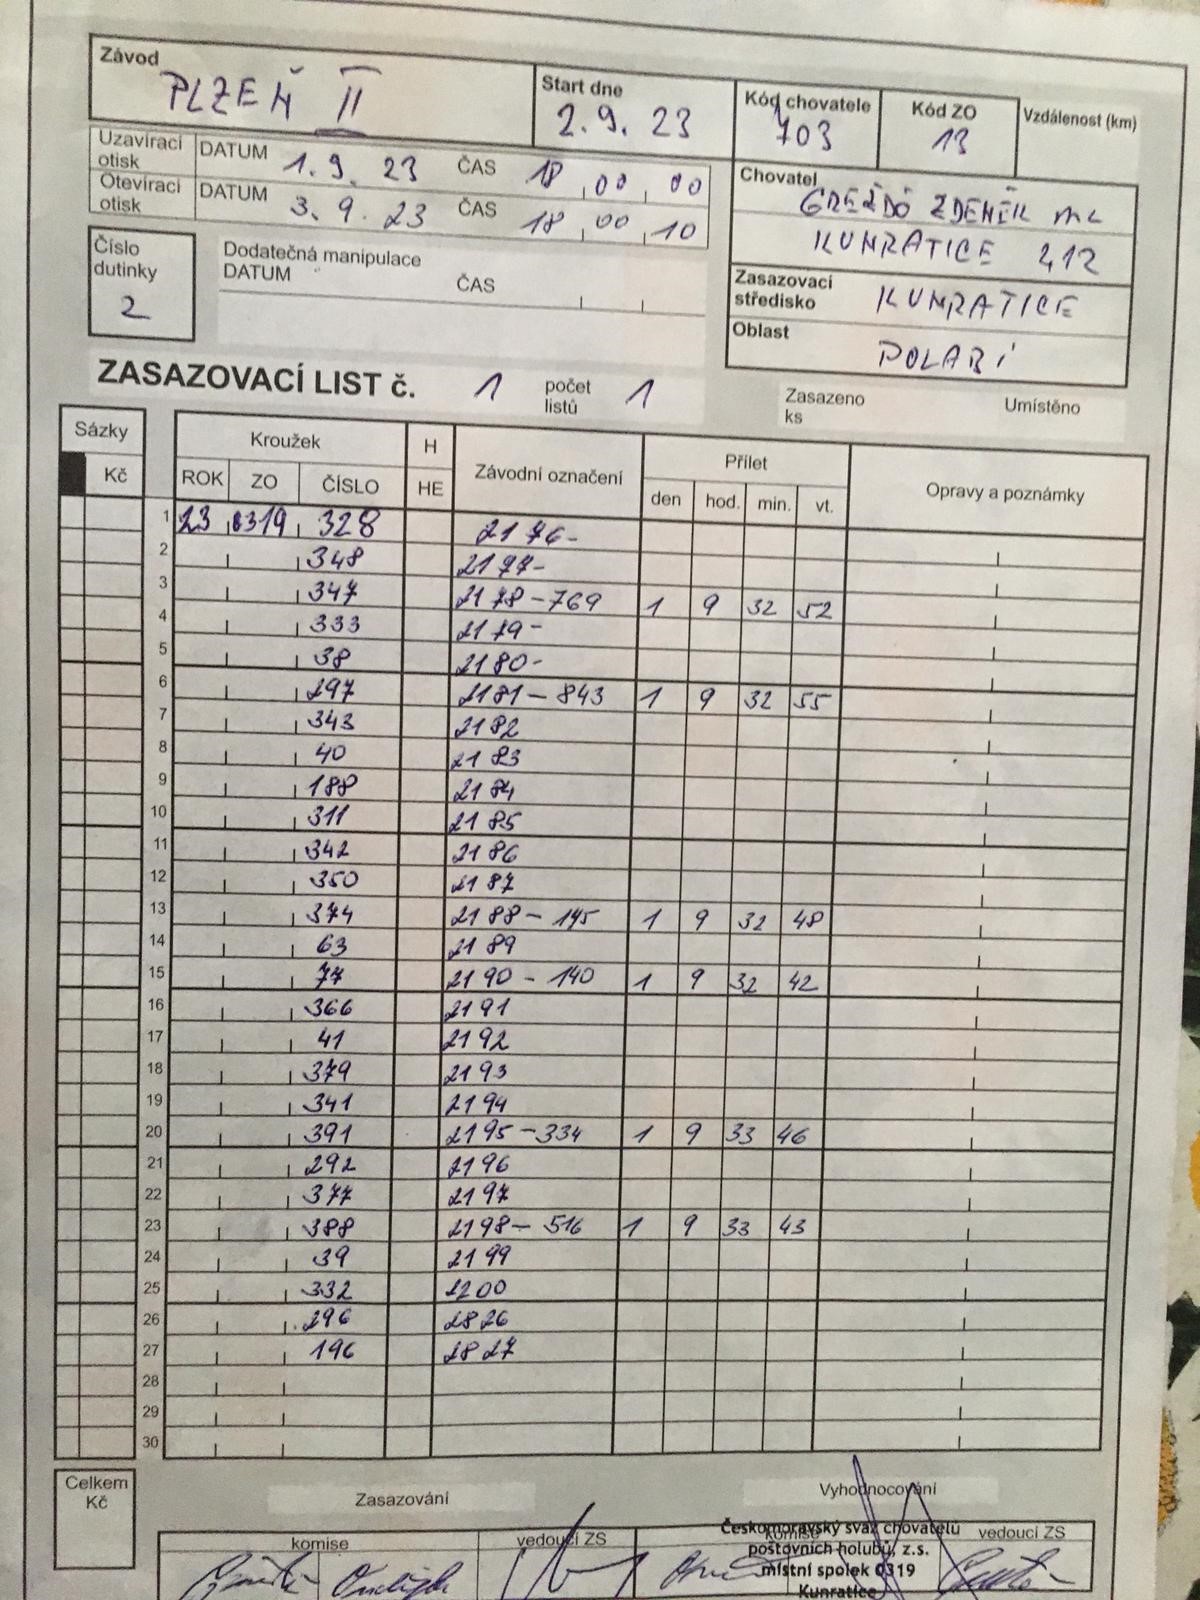 Závod
PLZEŇ II
Start dne
2.9.23
Kód chovatele
703
Kód ZO
13
Vzdálenost (km)
Uzavírací otisk DATUM 1.9.23 ČAS 18 00 00
Otevírací otisk DATUM 3.9.23 ČAS 18 00 10
Chovatel
ZDENĚK ML
KUNRATICE 212
Číslo dutinky
2
Dodatečná manipulace
DATUM ČAS
Zasazovací středisko KUNRATICE
Oblast POLABÍ
ZASAZOVACÍ LIST č. 1 počet listů 1
Zasazeno ks Umístěno
Sázky Kroužek H Závodní označení Přílet Opravy a poznámky
Kč ROK ZO ČÍSLO HE den hod. min. vt.
1 23 0319 328 2176-
2 348 2177-
3 347 2178-769 1 9 32 52
4 333 2179-
5 38 2180-
6 297 2181-843 1 9 32 55
7 343 2182
8 40 2183
9 188 2184
10 311 2185
11 342 2186
12 350 2187
13 374 2188-145 1 9 32 48
14 63 2189
15 77 2190-140 1 9 32 42
16 366 2191
17 41 2192
18 379 2193
19 341 2194
20 391 2195-334 1 9 33 46
21 292 2196
22 377 2197
23 388 2198-516 1 9 33 43
24 39 2199
25 332 2200
26 296 2826
27 196 2827
28
29
30
Celkem Kč
Zasazování Vyhodnocování
komise vedoucí ZS komise vedoucí ZS
Českomoravský svaz chovatelů
poštovních holubů, z.s.
místní spolek 0319
Kunratice